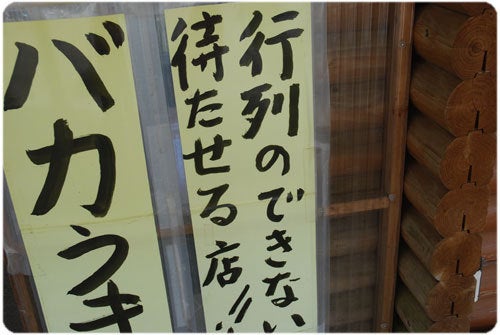 行列のできない
待たせる店!!
バカうま